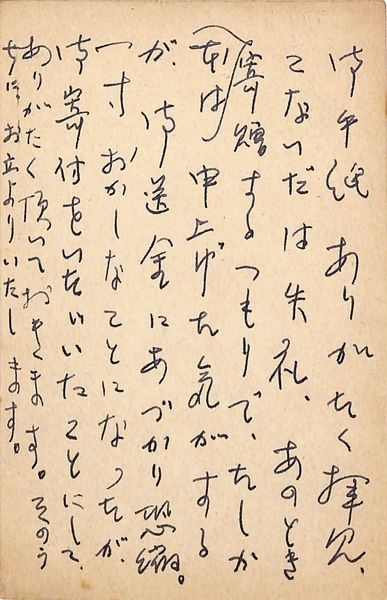 御手紙ありがたく拝見、
こないだは失礼、あのとき
(本は)寄贈するつもりで、たしか
申上げた気がする
が、御送金にあづかり恐縮。
一寸おかしなことになったが、
御寄付をいただいたことにして、
ありがたく頂いておきます。そのう
ちまたお立よりいたします。